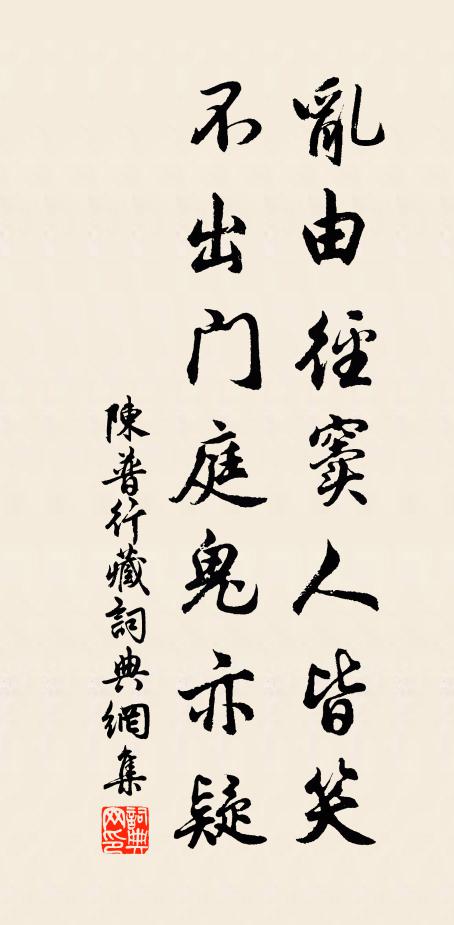 亂由徑竇人皆笑
不出门庭鬼亦疑
陳普行藏詞典網集
詞典网印